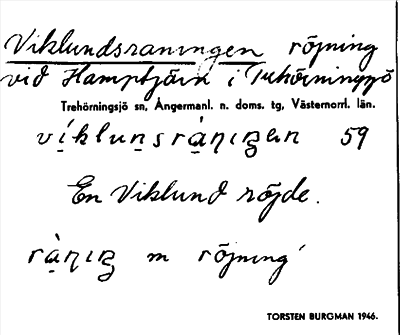 Viklundsraningen röjning
vid Hamptjärn i Trehörningsjö
Trehörningsjö sn, Ångermanl. n. doms. tg, Västernorrl. län.
víklunsràniŋen 59
En Viklund röjde.
ràniŋ m röjning
TORSTEN BURGMAN 1946.